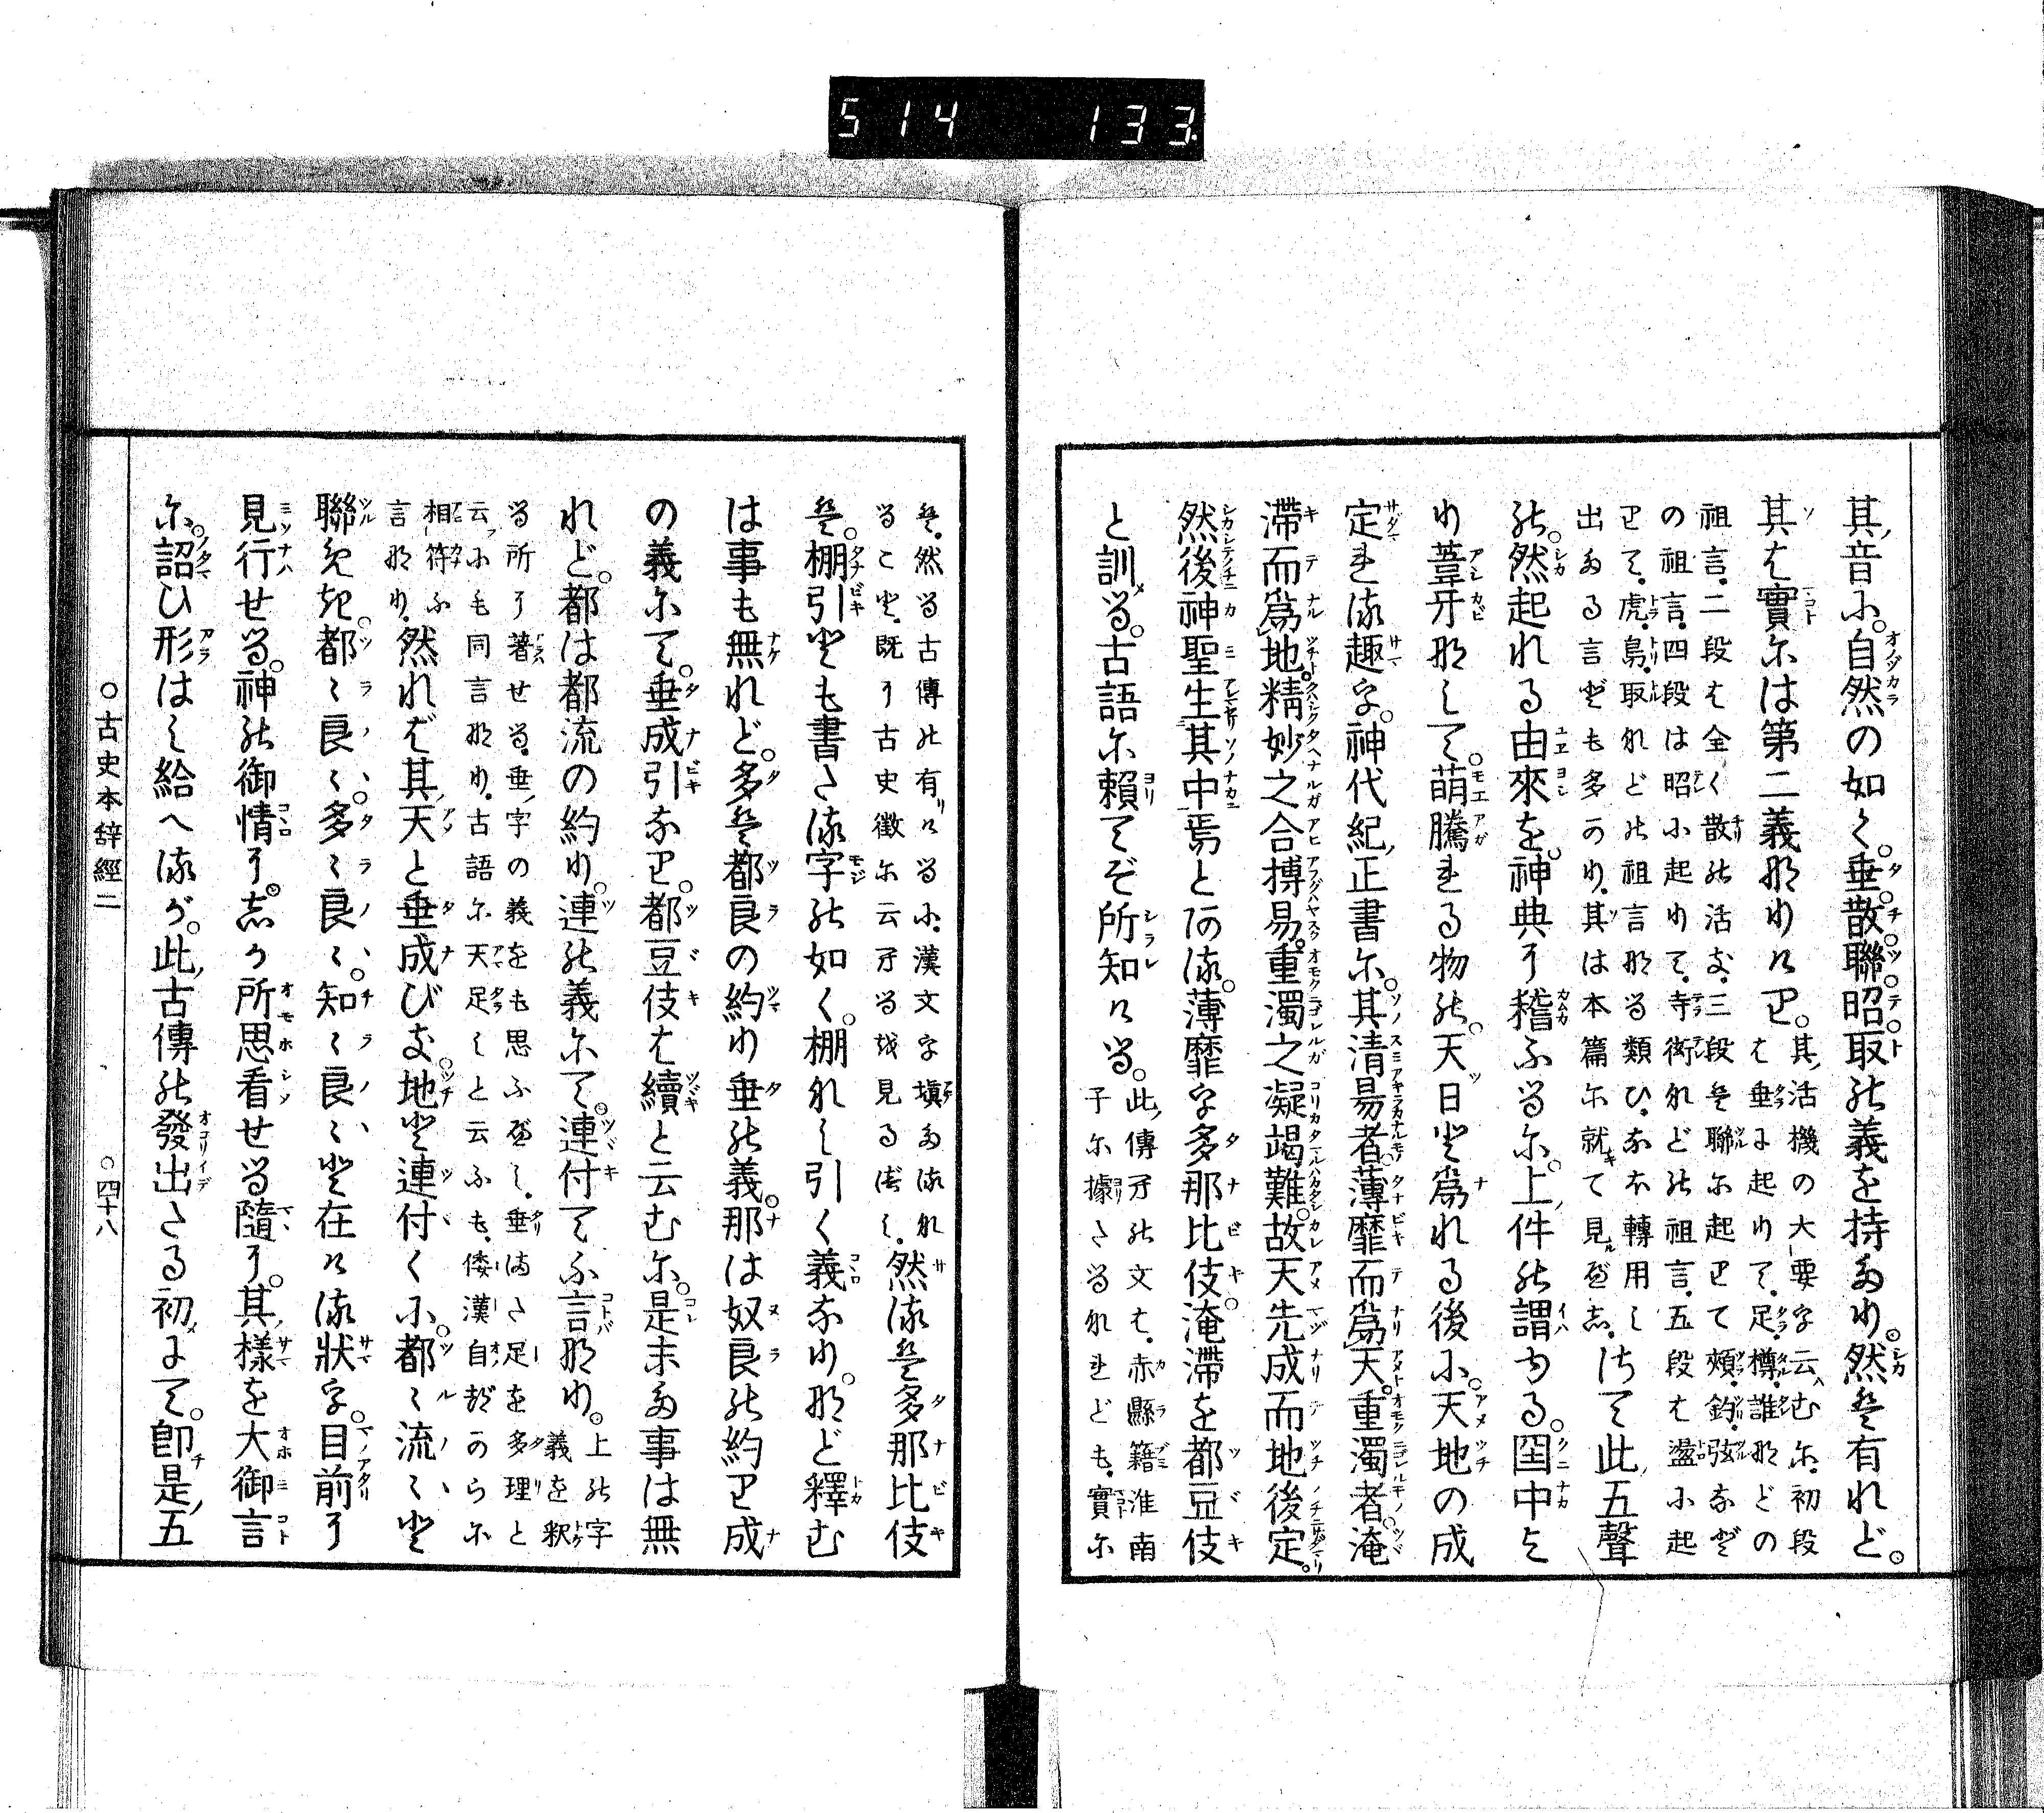 514 133.
其音に。自然の如く。垂散聯昭取の義を持たり。然は有れど。
其は實には第二義なりけり。其活機の大要を云むに、初段
は垂に起りて、足、樽、誰などの
祖言、二段は全く散の活き、三段は聯に起りて頰、鉤、弦などの祖言、四段は昭に起りて、寺、衒などの祖言、五段は盪に起
りて、虎、鳥、取などの祖言なる類ひ、なほ轉用し
出たる言どもも多かり、其は本篇に就て見るべし、
さて此五聲
の。然起れる由來を。神典に稽ふるに。上件の謂ゆる。国中よ
り葦牙なして。萌騰れる物の。天日と爲れる後に。天地の成
定れる趣を。神代紀正書に。其清昜者。薄靡而爲天。重濁者。淹
滯而爲地。精妙之合摶易。重濁之凝竭難。故天先成而地後定。
然後神聖生其中焉とある。薄靡を多那比伎。淹滯を都豆伎
と訓る。古語に賴てぞ所知ける。此傳の文は、赤縣籍淮南
子に據さるれども、實に
は、然る古傳の有けるに、漢文字填たるな
ること、既に古史徵に云るを見るべし、
然るは多那比伎
は。棚引とも書さる字の如く。棚なし引く義なり。など釋む
は事も無れど。多は都良の約り垂の義。那は奴良の約り成
の義にて。垂成引なり。都豆伎は續と云むに。是また事は無
れど。都は都流の約り。連の義にて。連付てふ言なり。上の字
義を釈
る所に著せる、垂字の義をも思ふべし、垂はた足を多理と
云ふにも同言なり、古語に天足しと云ふも、倭漢自おのづからに
相符ふ
言なり、
然れば其天と垂成びき。地と連付くに。都〻流〻と
聯なき。都〻良〻多〻良〻知〻良〻と在ける狀を。目前に
見行せる。神の御情に。志か所思看せる隨に。其樣を大御言
に。詔ひ形はし給へるが。此古傳の發出たる初にて。卽是五
○古史本辭經二 ○四十八